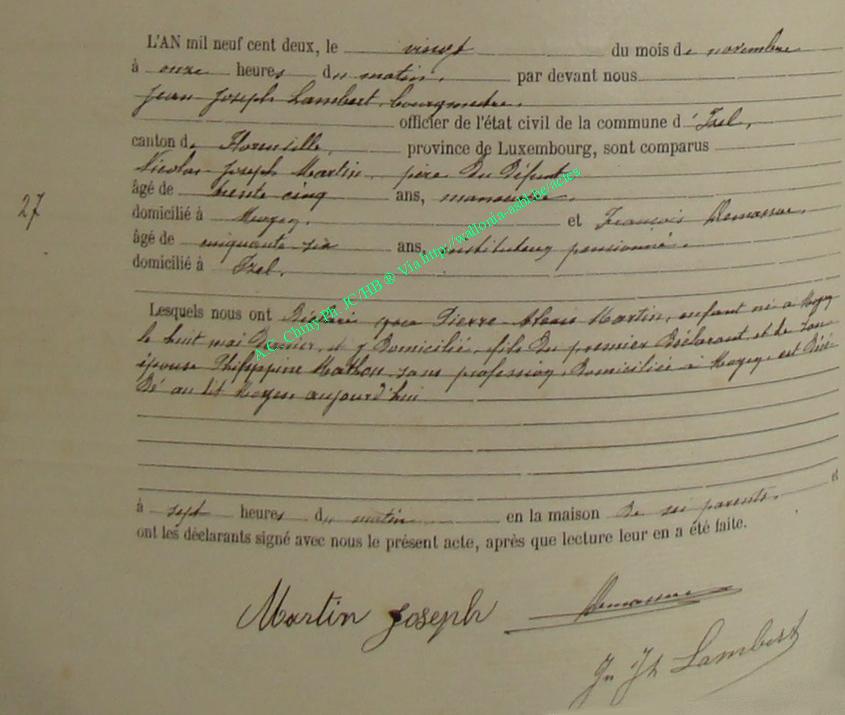 L'AN mil neuf cent deux, le vingt du mois de novembre
à onze heures du matin, par devant nous
Jean Joseph Lambert, bourgmestre,
officier de l'état civil de la commune d'Izel,
canton de Florenville, province de Luxembourg, sont comparus
Nicolas Joseph Martin, père du défunt,
âgé de trente cinq ans, manoeuvre,
27
domicilié à Moyen, et François Demasure,
âgé de cinquante six ans, instituteur pensionné,
domicilié à Izel,
Lesquels nous ont déclaré que Pierre Martin, enfant né à Moyen
le huit mai dernier, et y domicilié, fils du premier déclarant et de son
épouse Philippine Mathon, sans profession, domiciliée à Moyen, est décé-
dé au dit Moyen aujourd'hui
à sept heures du matin en la maison de ses parents, et
ont les déclarants signé avec nous le présent acte, après que lecture leur en a été faite.
Martin Joseph
Jn Jh Lambert
A.C. Chiny Ph. JC/HB ® Via http://wallonia-asbl.be/actes